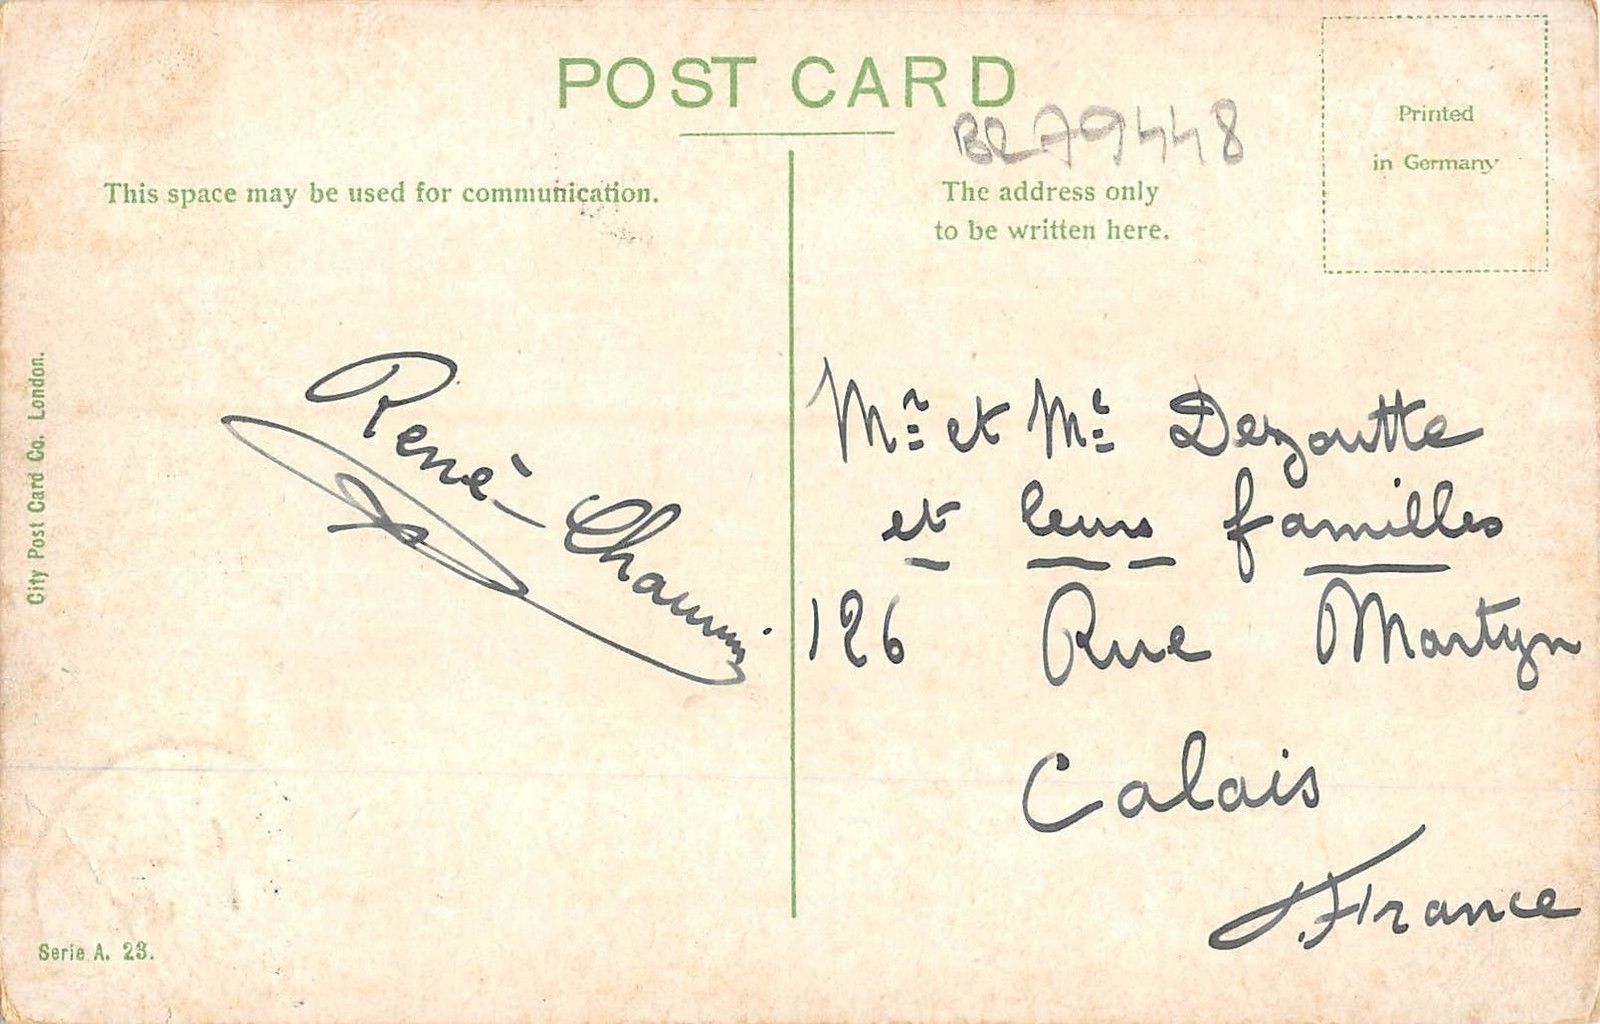 POST CARD
BR79448
Printed
in Germany
This space may be used for communication.
The address only
to be written here.
City Post Card Co. London.
René
Mr et Me Dezoutte
et leurs familles
126 Rue Martyn
Calais
France
Serie A. 23.